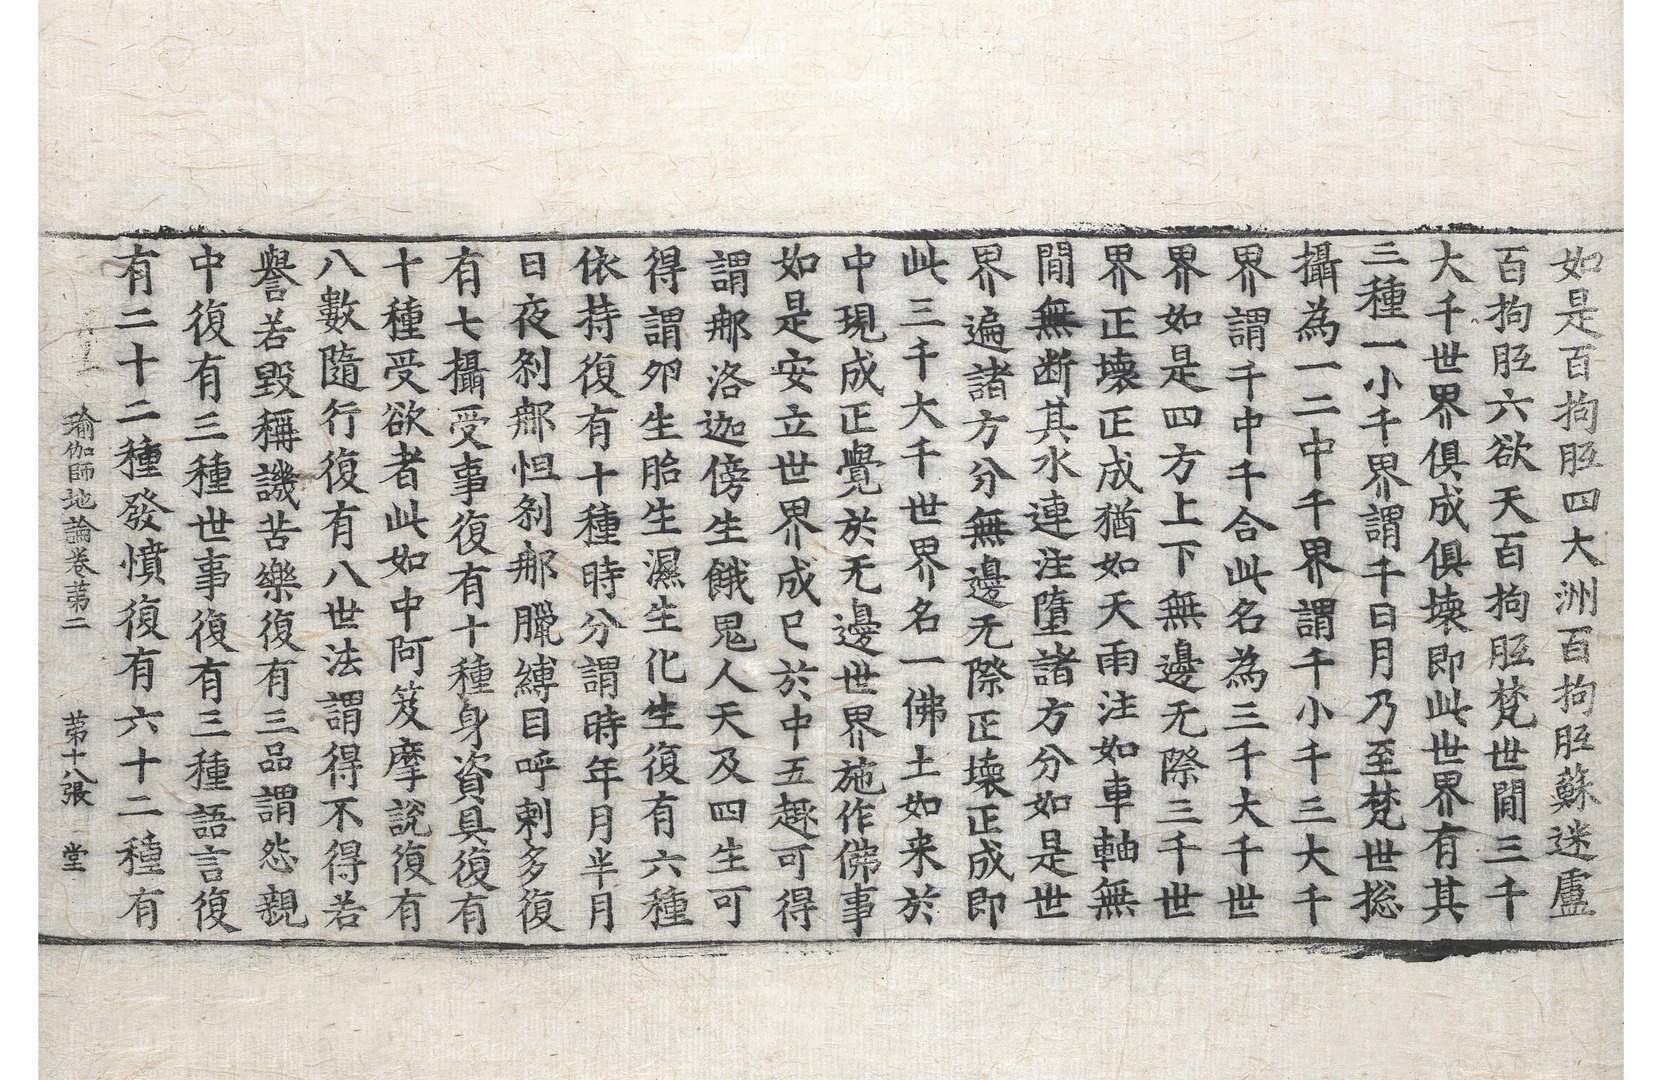 如是百拘胝四大洲百拘胝蘇迷盧
百拘胝六欲天百拘胝梵世間三千
大千世界俱成俱壊即此世界有其
三種一小千界謂千日月乃至梵世揔
攝為一二中千界謂千小千三大千
界謂千中千合此名為三千大千世
界如是四方上下無邊无際三千世
界正壊正成猶如天雨注如車軸無
間無断其水連注墮諸方分如是世
界遍諸方分無邊无際正壊正成即
此三千大千世界名一佛土如来於
中現成正覺於无邊世界施作佛事
如是安立世界成已於中五趣可得
謂那洛迦傍生餓鬼人天及四生可
得謂夘生胎生濕生化生復有六種
依持復有十種時分謂時年月半月
日夜刹那怛刹那臘縛目呼剌多復
有七攝受事復有十種身資具復有
十種受欲者此如中阿笈摩說復有
八數隨行復有八世法謂得不得若
譽若毀稱譏苦樂復有三品謂怨親
中復有三種世事復有三種語言復
有二十二種發憤復有六十二種有
瑜伽師地論卷苐二　苐十八張　堂